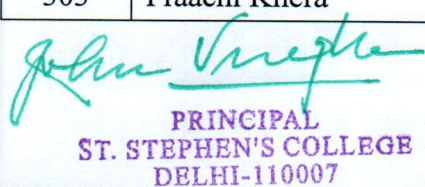 303 Praachi Khera
John Varghese
PRINCIPAL
ST. STEPHEN'S COLLEGE
DELHI-110007